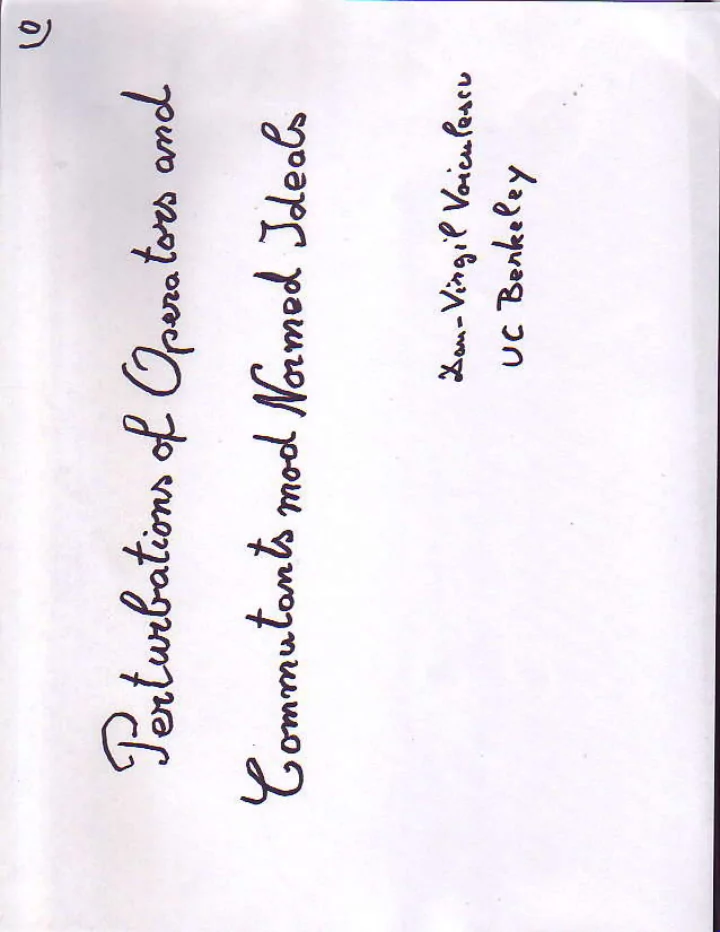 0
Perturbations of Operators and
Commutants mod Normed Ideals
Dan-Virgil Voiculescu
UC Berkeley